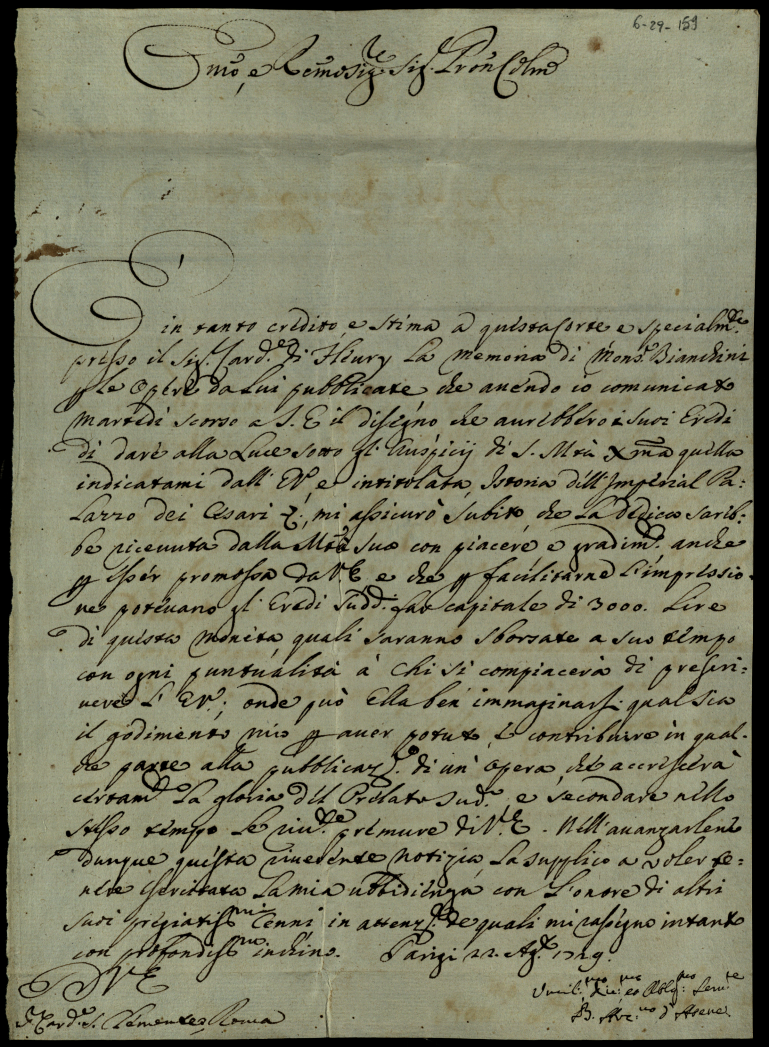 6-29-159
Emo, e Remo Sigre Sigr. Pron Colmo
È in tanto credito, e stima a questa Corte e specialmte.
presso il Sigr. Cardle di Fleury la memoria di Monsr. Bianchini
p le Opere da lui pubblicate, che avendo io comunicato
Martedi scorso a S. E il disegno che aurebbero i suoi Eredi
di dare alla Luce sotto gl'Auspicij di S. Mtà Xma quella
indicatami dall' EV, e intitolata, Istoria dell'Imperial Pa:
lazzo dei Cesari &, mi assicurò subito, che la Dedica sareb:
be ricevuta dalla Mtà Sua con piacere e gradimto. anche
p esser promossa da V.E e che p facilitarne l'impressio:
ne potevano gl'Eredi Sudd. far capitale di 3000. Lire
di questa moneta quali saranno sborsate a suo tempo
con ogni puntualità à chi si compiacerà di prescri:
vere l' EV.; onde può Ella ben immaginarsi qual sia
il godimento mio p aver potuto contribuire in qual:
che parte alla pubblicazne. di un' Opera, che accrescerà
certamte. la gloria del Prelato Sudo., e secondare nello
stesso tempo le rivte. premure di V.E. Nell'avanzarlene
dunque questa riverente notizia, la supplico a voler te:
nere esercitata la mia ubbidienza con l'onore di altri
suoi pregiatissmi Cenni in attenzne. de quali mi rassegno intanto
con profondissmo inchino. Parigi 22. Agto. 1729.
D V E
Sr Cardle. S. Clemente Roma
Umilmo, Divmo: ed Obblgmo: Servre
B. Arc.vo d'Atene